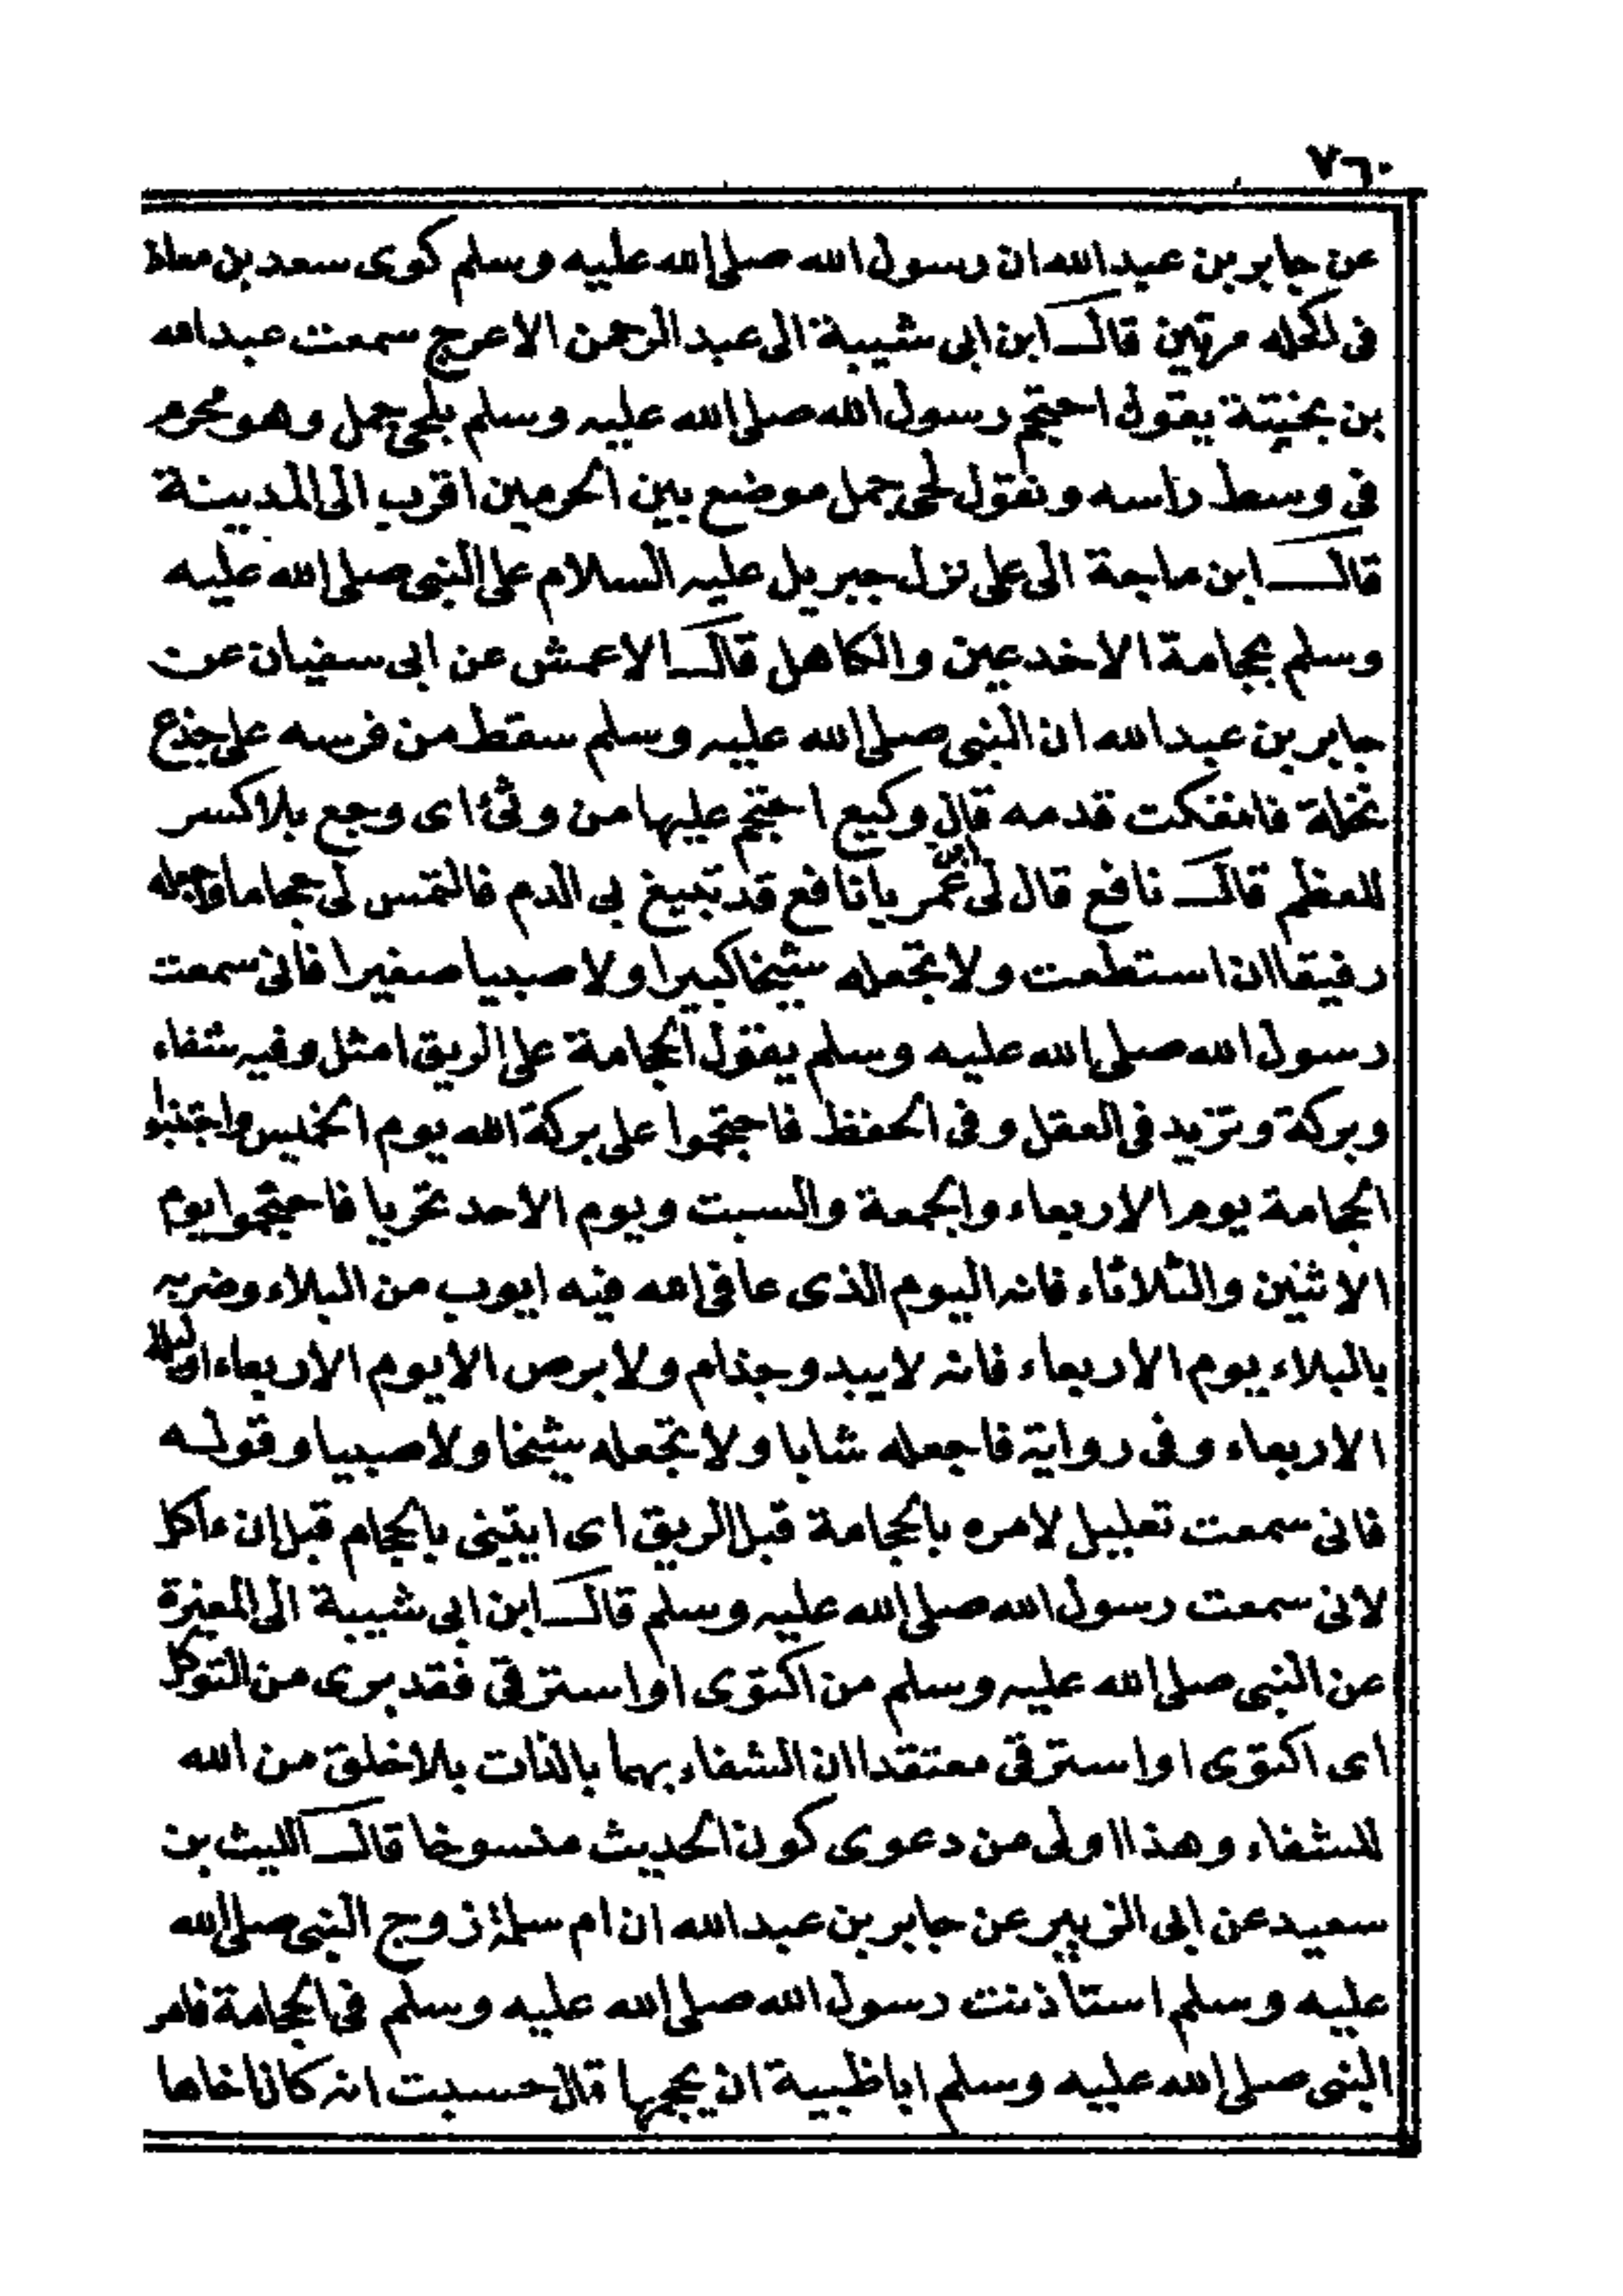 ٧٦٠
عن جابر بن عبد الله ان رسول الله صلى الله عليه وسلم كوى سعد بن معاذ
فى اكحله مرتين قال ابن ابى شيبة الى عبد الرحمن الاعرج سمعت عبد الله
بن بحينة يقول احتجم رسول الله صلى الله عليه وسلم بلحى جمل وهو محرم
فى وسط راسه ونقول لحى جمل موضع بين الحرمين اقرب الى المدينة
قال ابن ماجة الى على نزل جبريل عليه السلام على النبى صلى الله عليه
وسلم بحجامة الاخدعين والكاهل قال الاعمش عن ابى سفيان عن
جابر بن عبد الله ان النبى صلى الله عليه وسلم سقط من فرسه على جذع
نخلة فانفكت قدمه قال وكيع احتجم عليها من وثئ اى وجع بلا كسر
للعظم قال نافع قال لى ابن عمر يا نافع قد تبيغ بى الدم فالتمس لى حجاما واجعله
رفيقا ان استطعت ولا تجعله شيخا كبيرا ولا صبيا صغيرا فانى سمعت
رسول الله صلى الله عليه وسلم يقول الحجامة على الريق امثل وفيه شفاء
وبركة وتزيد فى العقل وفى الحفظ فاحتجموا على بركة الله يوم الخميس واجتنبوا
الحجامة يوم الاربعاء والجمعة والسبت ويوم الاحد تحريا فاحتجموا يوم
الاثنين والثلاثاء فانه اليوم الذى عافى الله فيه ايوب من البلاء وضربه
بالبلاء يوم الاربعاء فانه لا يبدو جذام ولا برص الا يوم الاربعاء او ليلة
الاربعاء وفى رواية فاجعله شابا ولا تجعله شيخا ولا صبيا وقوله
فانى سمعت تعليل لامره بالحجامة قبل الريق اى ايتينى بالحجام قبل ان ءاكل
لانى سمعت رسول الله صلى الله عليه وسلم قال ابن ابى شيبة الى المغيرة
عن النبى صلى الله عليه وسلم من اكتوى او استرقى فقد برى من التوكل
اى اكتوى او استرقى معتقدا ان الشفاء بهما بالذات بلا خلق من الله
للشفاء وهذا اولى من دعوى كون الحديث منسوخا قال الليث بن
سعيد عن ابى الزبير عن جابر بن عبد الله ان ام سلمة زوج النبى صلى الله
عليه وسلم استأذنت رسول الله صلى الله عليه وسلم فى الحجامة فامر
النبى صلى الله عليه وسلم ابا ظبية ان يحجمها قال حسبت انه كان اخاها